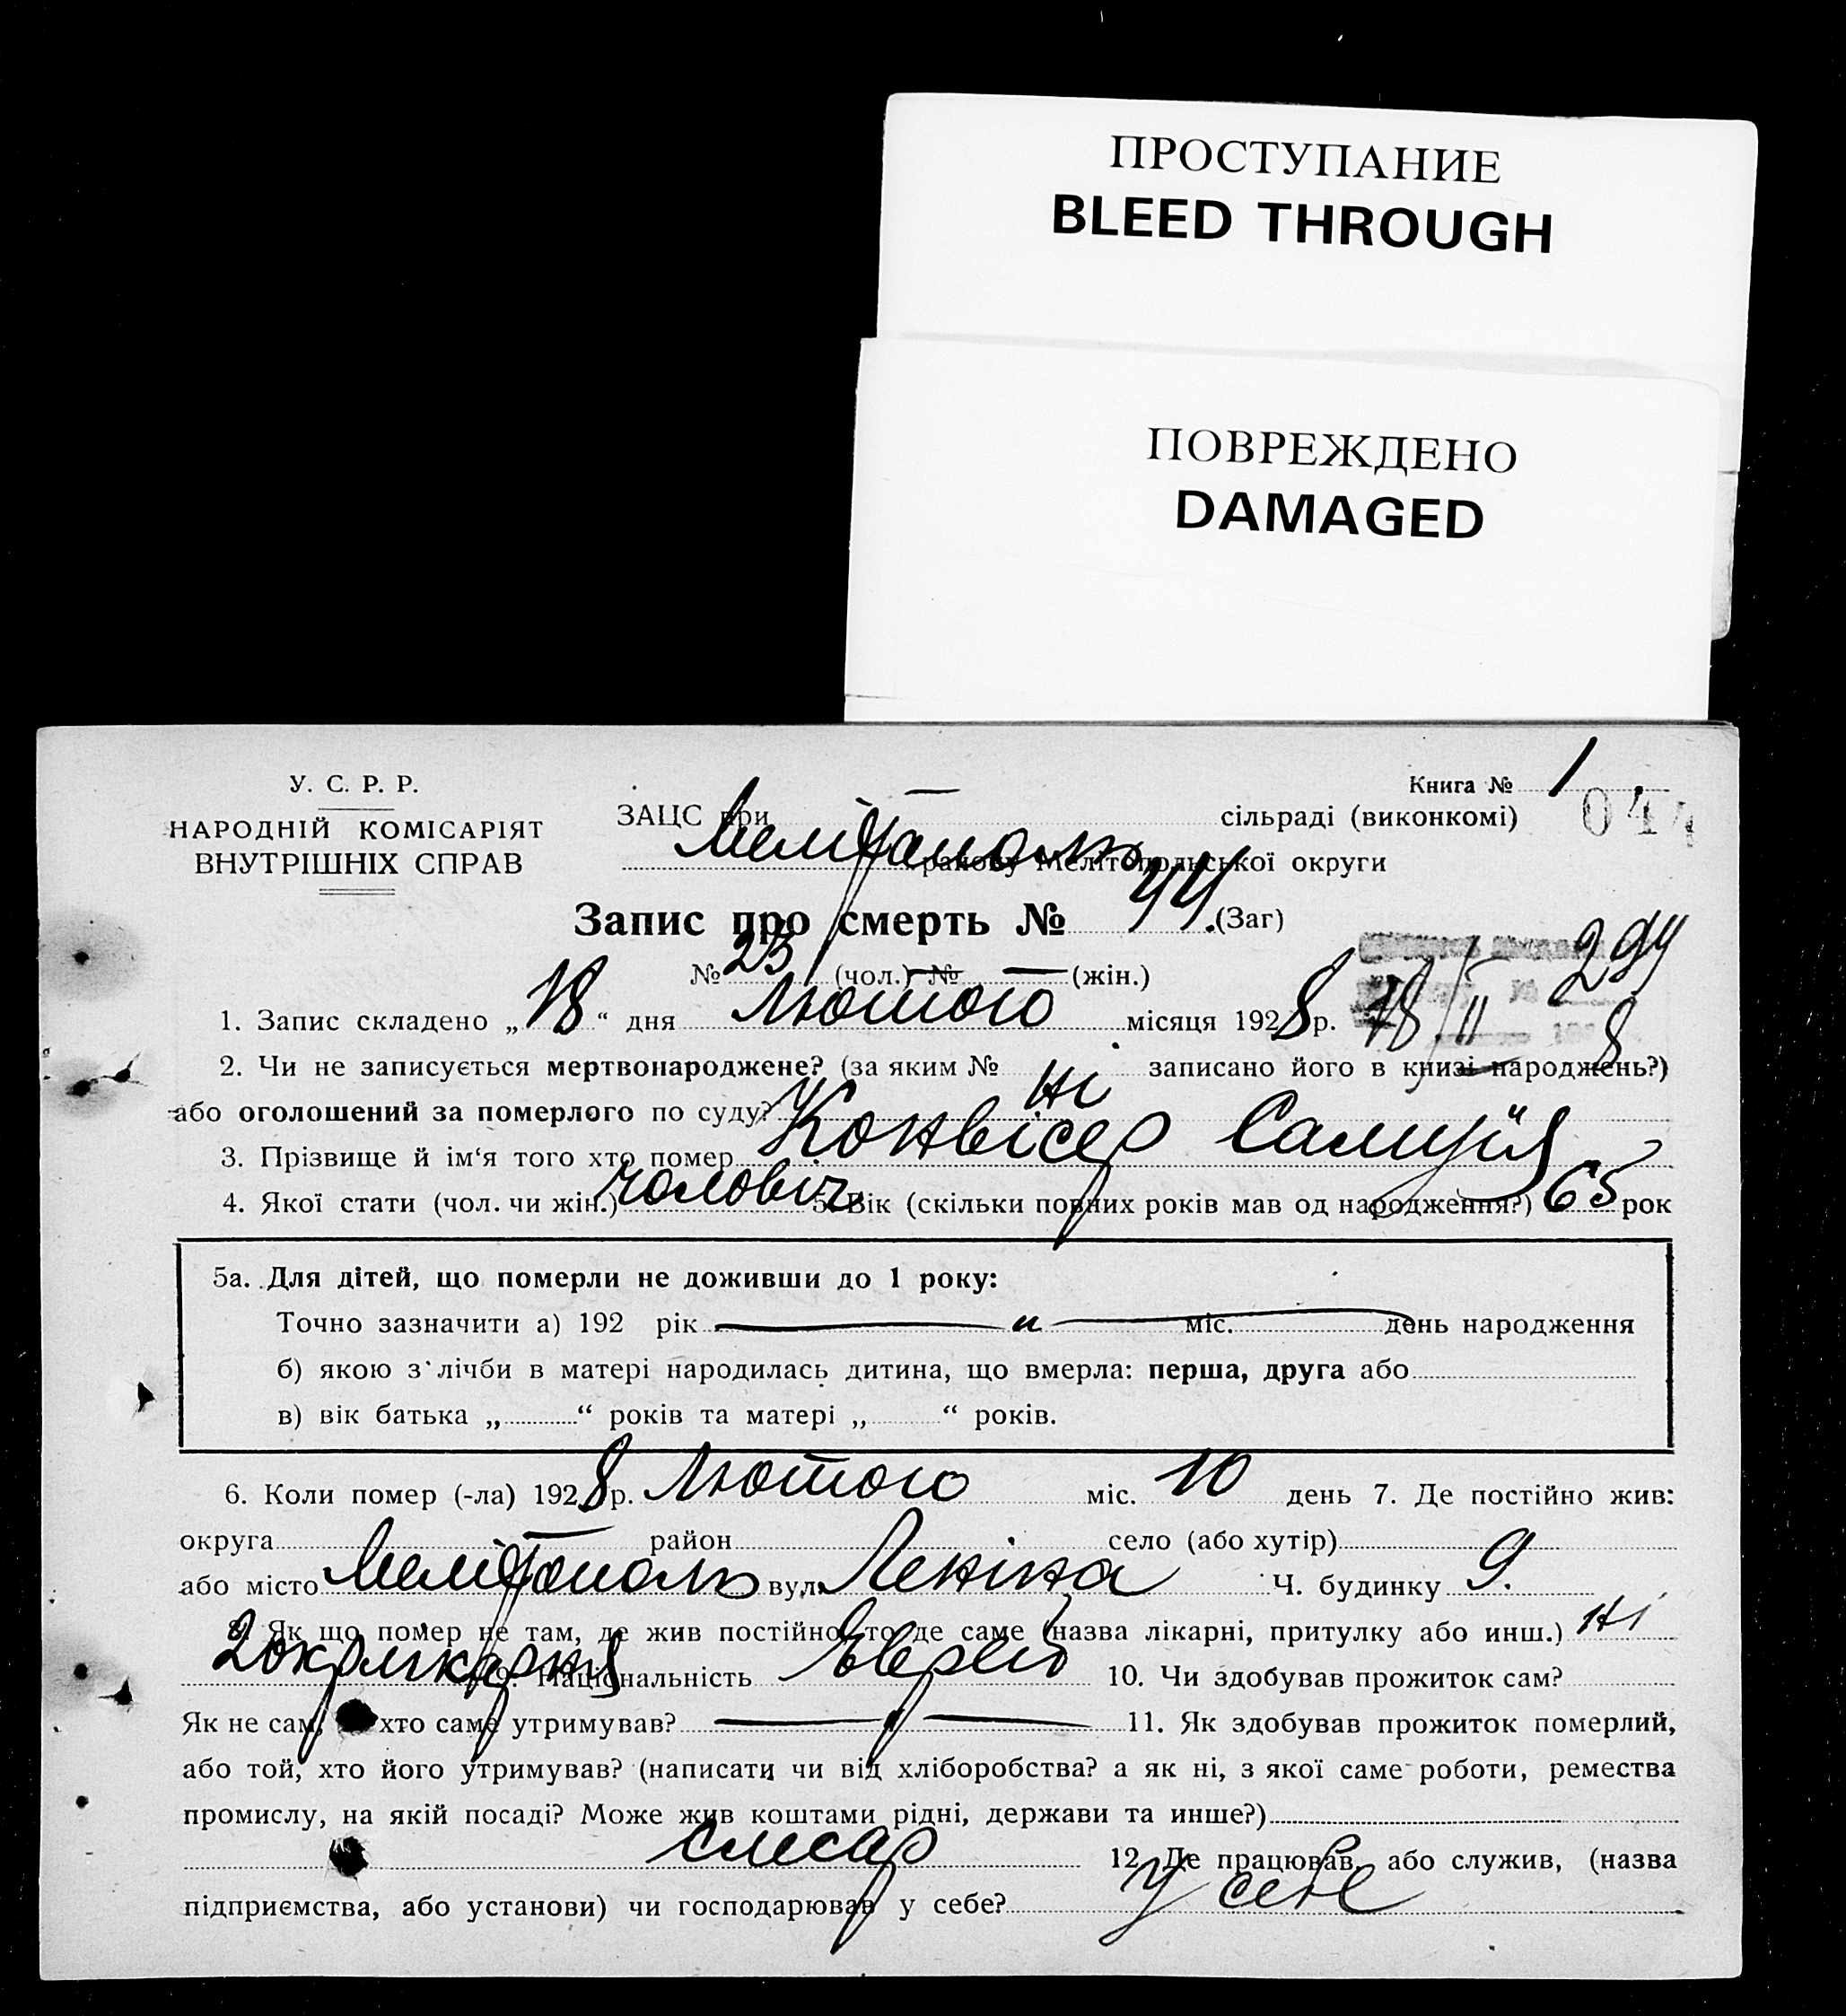 ПРОСТУПАНИЕ
BLEED THROUGH
ПОВРЕЖДЕНО
DAMAGED
У. С. Р. Р.
НАРОДНІЙ КОМІСАРІЯТ
ВНУТРІШНІХ СПРАВ
Книга № 1
044
ЗАЦС при — сільраді (виконкомі)
Мелітополь району Мелітопольської округи
Запис про смерть № 44 (Заг)
№ 23 (чол.) № — (жін.)
299
1. Запис складено „18“ дня Лютого місяця 1928 р. 18/II 8
2. Чи не записується мертвонароджене? (за яким № записано його в книзі народжень?)
або оголошений за померлого по суду? Ні
3. Прізвище й ім‘я того хто помер Конвісер
4. Якої стати (чол. чи жін.) чоловіч. 5. Вік (скільки повних років мав од народження?) 65 рок
5а. Для дітей, що померли не доживши до 1 року:
Точно зазначити а) 192 рік — „ — міс. день народження
б) якою з‘лічби в матері народилась дитина, що вмерла: перша, друга або
в) вік батька „ “ років та матері „ “ років.
6. Коли помер (-ла) 1928 р. Лютого міс. 10 день 7. Де постійно жив:
округа — район село (або хутір)
або місто Мелітополь вул. Леніна Ч. будинку 9.
8. Як що помер не там, де жив постійно, то де саме (назва лікарні, притулку або инш.) Ні
2 окрлікарня 9. Національність Еврей 10. Чи здобував прожиток сам?
Як не сам, хто саме утримував? — „ — 11. Як здобував прожиток померлий,
або той, хто його утримував? (написати чи від хліборобства? а як ні, з якої саме роботи, ремества
промислу, на якій посаді? Може жив коштами рідні, держави та инше?)
слесар 12. Де працював, або служив, (назва
підприємства, або установи) чи господарював у себе? У себе